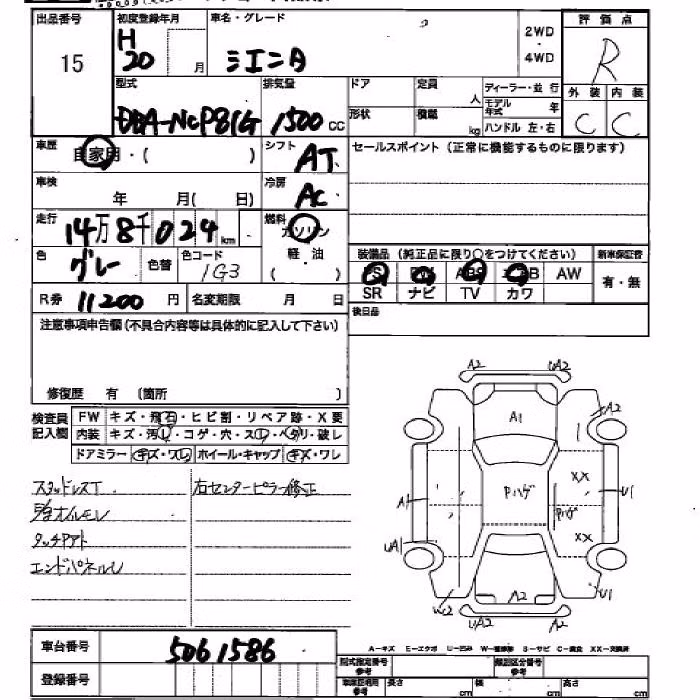 出品番号
15
初度登録年月
H
20 月
車名・グレード
シエンタ
2WD
・
4WD
評価点
R
外装 内装
C C
型式
DBA-NCP81G
排気量
1500 CC
ドア
定員
人
形状
積載
kg
ディーラー・並行
モデル年式 年
ハンドル 左・右
車歴
自家用・( )
シフト
AT
セールスポイント (正常に機能するものに限ります)
車検
年 月( 日)
冷房
AC
走行
14万8千024km
燃料
ガソリン
軽・油
( )
色
グレー
色替
色コード
1G3
装備品 (純正品に限り○をつけてください)
新車保証書
PS PW ABS エアB AW
SR ナビ TV カワ
有・無
R券 11200 円
名変期限 月 日
後日品
注意事項申告欄(不具合内容等は具体的に記入して下さい)
修復歴 有 (箇所 )
検査員
記入欄
FW キズ・飛石・ヒビ割・リペア跡・X要
内装 キズ・汚レ・コゲ・穴・スレ・ヘタリ・破レ
ドアミラー キズ・ワレ ホイール・キャップ キズ・ワレ
スタッドレスT
右センターピラー修正
タッチPアト
エンドパネルU
A2 UA2
A1
A2
XX
A1
Pハゲ
Pハゲ
U1
UA1
XX
A2
U1
UA2 A2
車台番号
5061586
登録番号
A-キズ E-エクボ U-凹み W-補修跡 S-サビ C-腐食 XX-交換済
型式指定番号
参考
類別区分番号
参考
車庫証明用
参考
長さ cm
幅 cm
高さ cm